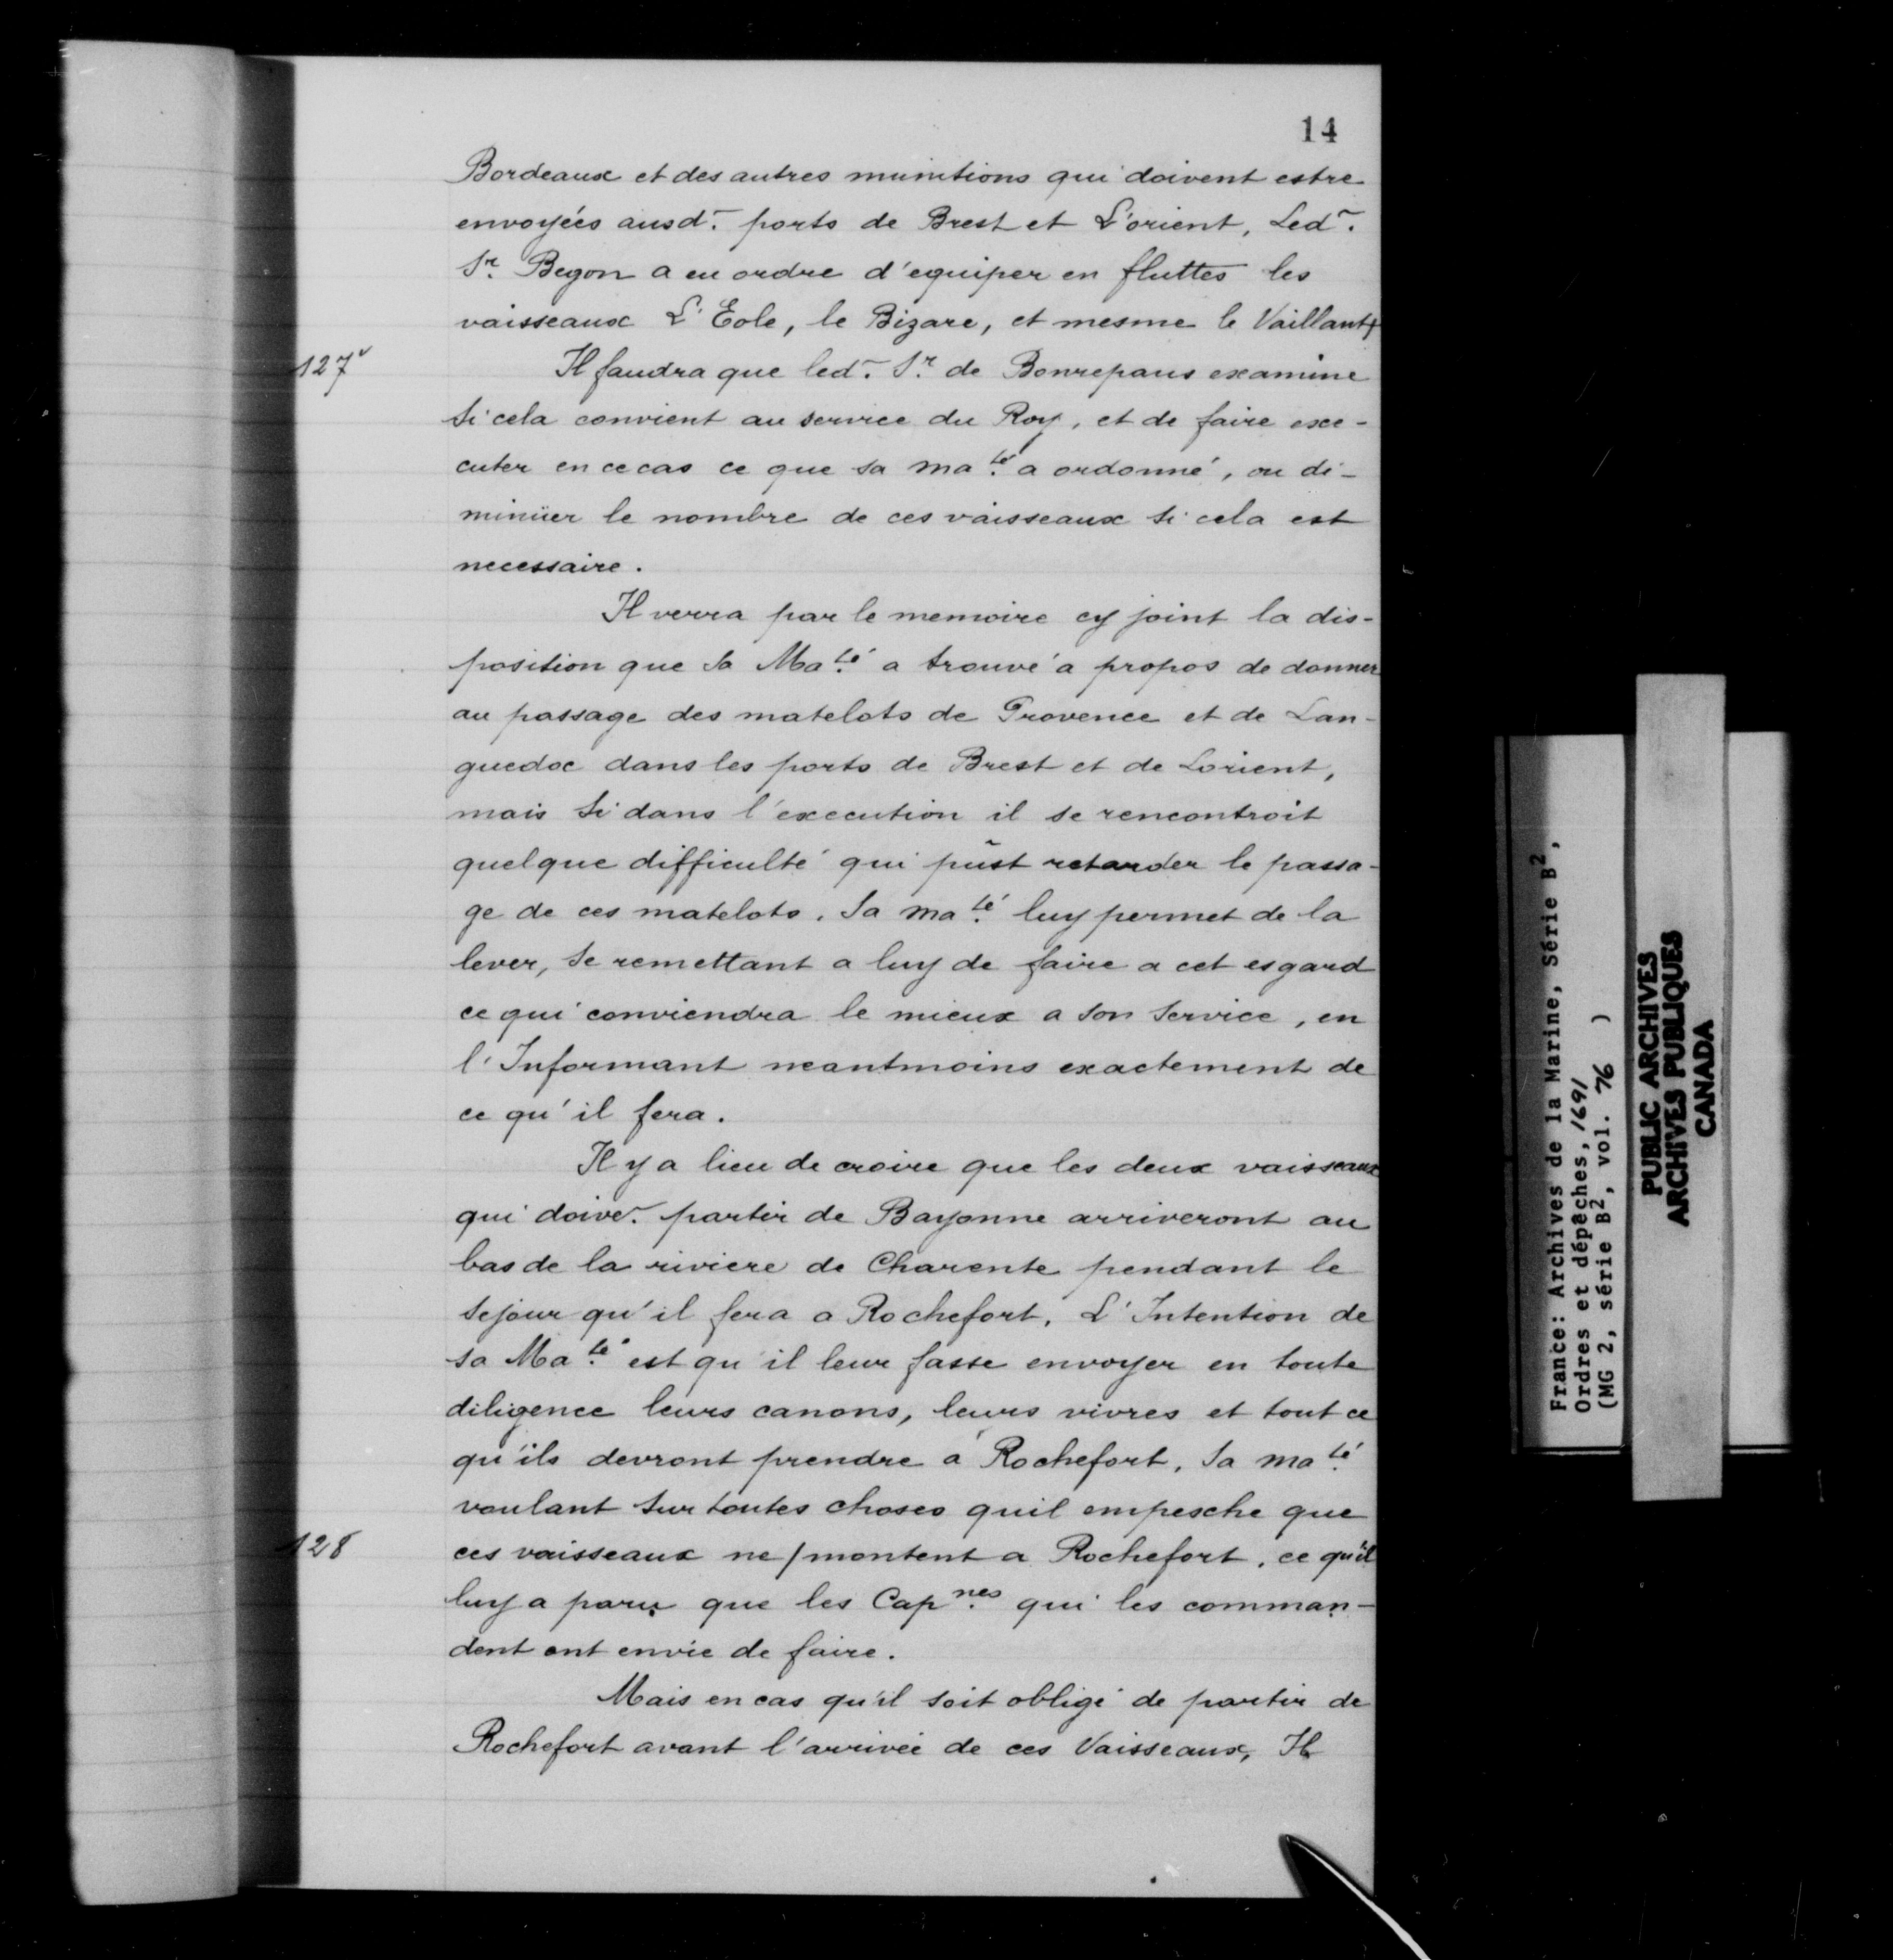 14
Bordeaux et des autres munitions qui doivent estre
envoyées ausd. ports de Brest et L'orient, Led.
Sr. Begon a eu ordre d'equiper en fluttes les
vaisseaux L'Eole, le Bizare, et mesme le Vaillant/
127v
Il faudra que led. Sr. de Bonrepaus examine
si cela convient au service du Roy, et de faire exe-
cuter en ce cas ce que sa ma.té a ordonné, ou di-
minüer le nombre de ces vaisseaux si cela est
necessaire.
Il verra par le memoire cy joint la dis-
position que sa Ma.té a trouvé a propos de donner
au passage des matelots de Provence et de Lan-
guedoc dans les ports de Brest et de Lorient,
mais si dans l'execution il se rencontroit
quelque difficulté qui pûst retarder le passa-
ge de ces matelots. Sa ma.té luy permet de la
lever, se remettant a luy de faire a cet esgard
ce qui conviendra le mieux a son service, en
l'Informant neantmoins exactement de
ce qu'il fera.
Il y a lieu de croire que les deux vaisseaux
qui doive. partir de Bayonne arriveront au
bas de la riviere de Charente pendant le
sejour qu'il fera a Rochefort. L'Intention de
sa Ma.té est qu'il leur fasse envoyer en toute
diligence leurs canons, leurs vivres et tout ce
qu'ils devront prendre a Rochefort. Sa ma.té
voulant sur toutes choses quil empesche que
128
ces vaisseaux ne/montent a Rochefort, ce qu'il
luy a paru que les Cap.nes qui les comman-
dent ont envie de faire.
Mais en cas qu'il soit obligé de partir de
Rochefort avant l'arrivée de ces Vaisseaux, Il
France: Archives de la Marine, Série B2,
Ordres et dépêches, 1691
(MG 2, série B2, vol. 76 )
PUBLIC ARCHIVES
ARCHIVES PUBLIQUES
CANADA